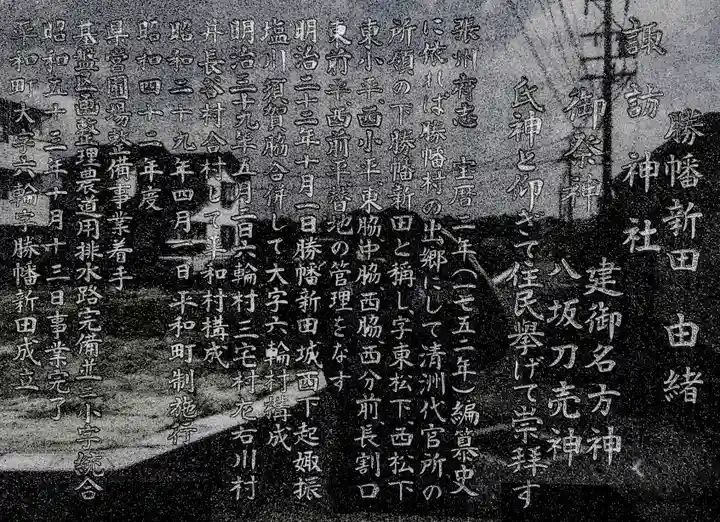 勝幡新田 由緒
諏訪神社
御祭神 建御名方神
八坂刀売神
氏神と仰ぎて住民挙げて崇拝す
張州府志 宝暦二年(一七五二年)編纂史
に依れば勝幡村の出郷にして清洲代官所の
所領の下勝幡新田と称し、字東松下、西松下
東小平、西小平、東脇、中脇、西脇、西分前、長割口
東前平、西前平替地の管理をなす
明治二十二年十月一日勝幡新田城西下起娵振
塩川須賀脇合併して大字六輪村構成
明治三十九年五月一日六輪村三宅村左右川村
井長谷村合村して平和村構成
昭和二十九年四月一日平和町制施行
昭和四十二年度
県営圃場整備事業着手
基盤区画整理農道用排水路完備並ニ小字統合
昭和五十三年十月十三日事業完了
平和町大字六輪字勝幡新田成立